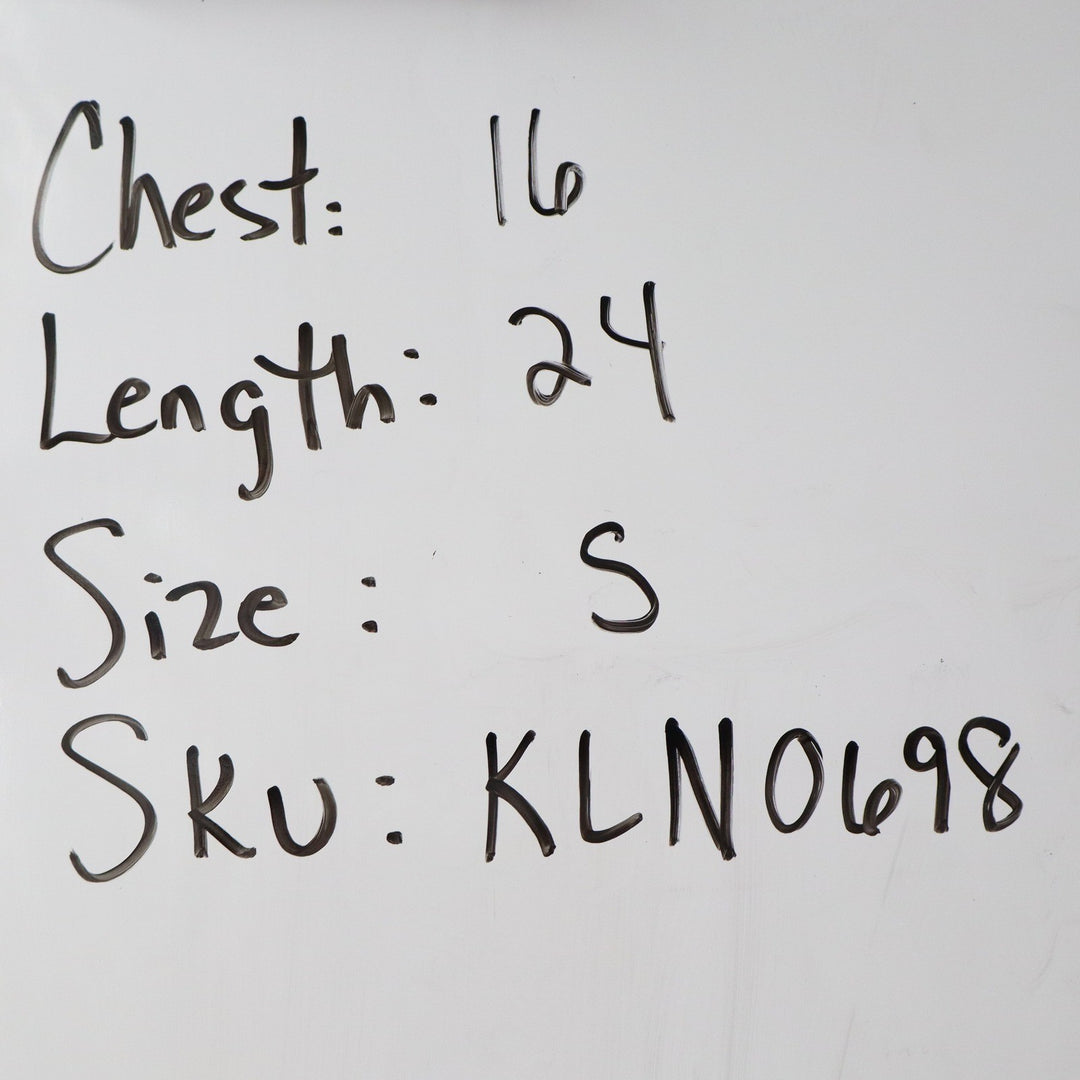 Chest: 16
Length: 24
Size: S
Sku: KLN0698